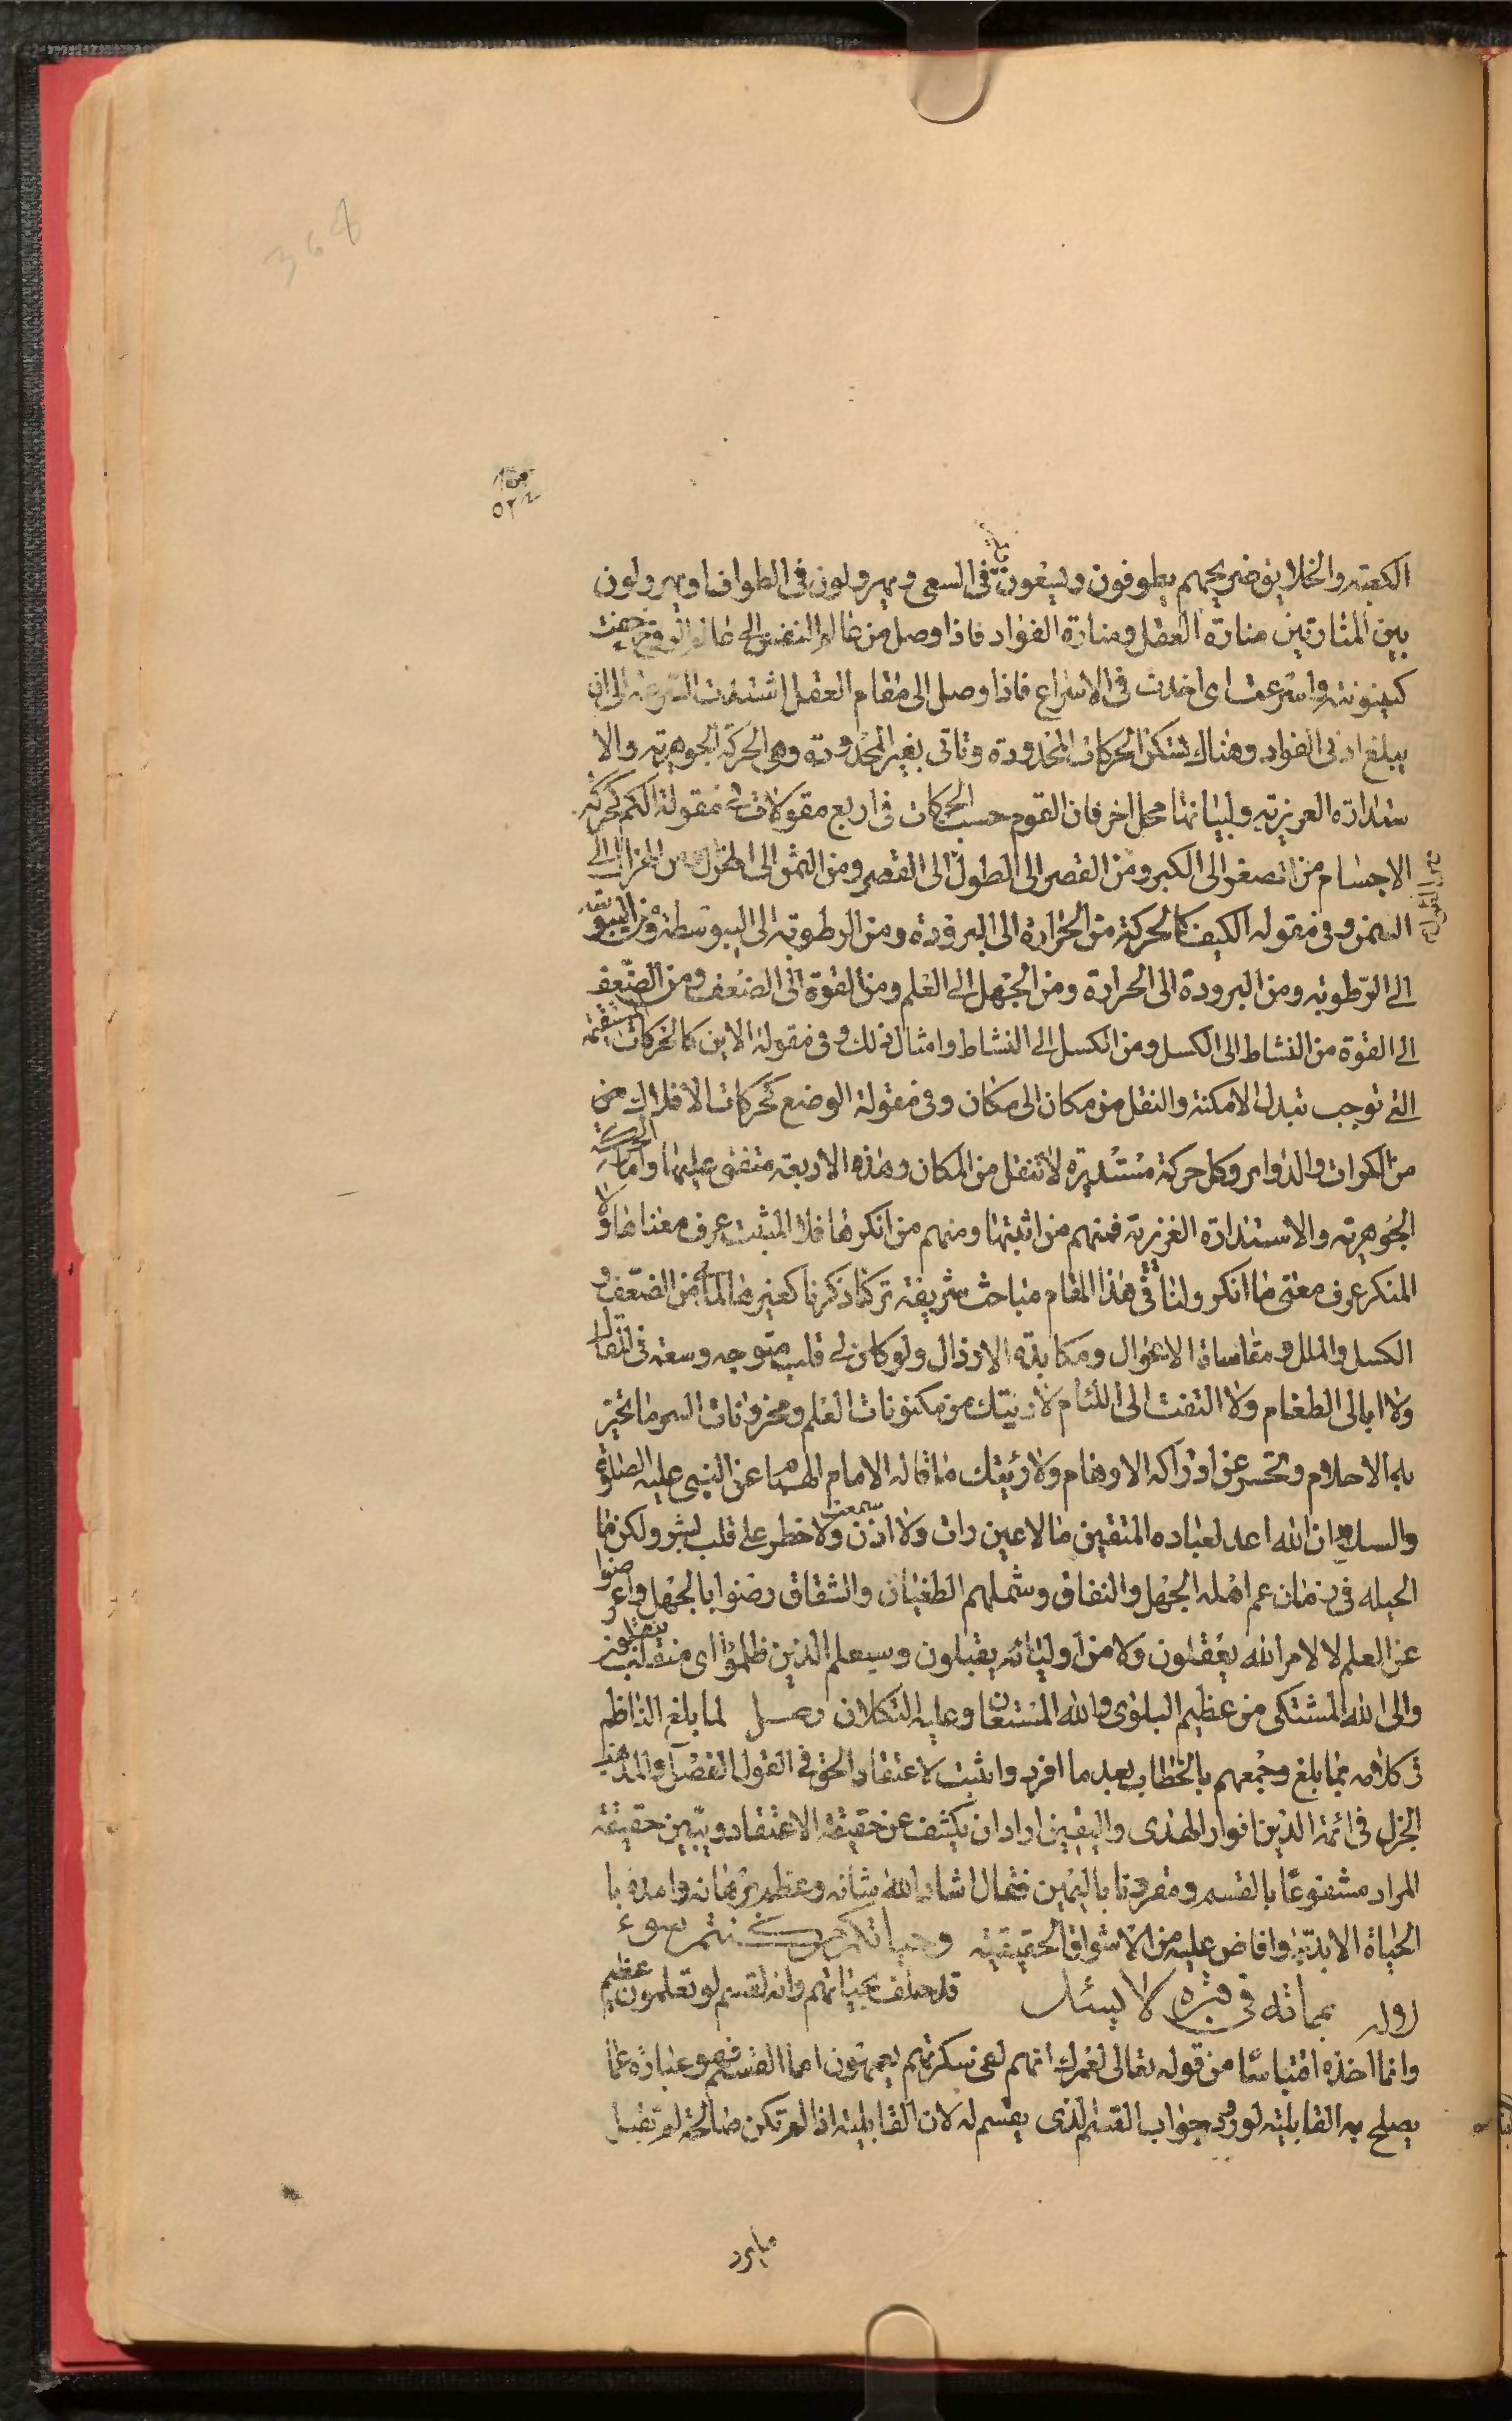 364
٥٢
الكعبة والخلايق ضريحهم يطوفون ويسعون في السعى ويهرولون في الطواف اويهرولون
بين المنارتين منارة العقل ومنارة الفؤاد فاذا وصل من عالم النفس الى عالم الروح خفت
كينونته واسرعت اى اخذت في الاسراع فاذا وصل الى مقام العقل اشتدت السرعة الى ان
يبلغ ادنى الفواد وهناك تسكن الحركات المحدودة وتاتى بغير المحدودة وهى الحركة الجوهرية والا
ستدارة الغريزية ولبيانها محل اخر فان القوم حسب الحركات في اربع مقولات في مقولة الكم كحركة
الاجسام من الصغر الى الكبر ومن القصر الى الطول الى القصر ومن السمن الى الهزل ومن الهزال الى
السمن وفى مقوله الكيف كالحركة من الحرارة الى البرودة ومن الرطوبة الى اليبوسة ومن اليبوسة
الى الرّطوبة ومن البرودة الى الحرارة ومن الجهل الى العلم ومن القوة الى الضعف ومن الضّعف
الى القوة من النشاط الى الكسل ومن الكسل الى النشاط وامثال ذلك وفى مقولة الاين كالحركات المستقيمة
التى توجب تبدل الامكنة والنقل من مكان الى مكان وفى مقولة الوضع كحركات الافلاك من
من الكرات والدواير وكل حركة مستديرة لا تنقل من المكان وهذه الاربعة متفق عليها واما الحركة
الجوهرية والاستدارة الغريزية فمنهم من اثبتها ومنهم من انكرها فلا المثبت عرف معناها ولا
المنكر عرف معنى ما انكر ولنا في هذا المقام مباحث شريفة تركنا ذكرنا كغيرها لما بى من الضّعف و
الكسل والملل ومقاساة الاهوال ومكابدة الارذال ولو كان لى قلب متوجه وسعة في المقال
ولا ابالى الطغام ولا التفت الى اللئام لاريتك من مكنونات العلم ومخزونات السر ما تحير
به الاحلام وتحسر عن ادراكه الاوهام ولاريتك ما قاله الامام الهمام عن النبى عليه الصلوة
والسلام ان الله اعد لعباده المتقين ما لا عين رات ولا اذن سمعت ولا خطر على قلب بشر ولكن ما
الحيله في زمان عم اهله الجهل والنفاق وشملهم الطغيان والشقاق رضوا بالجهل واعرضوا
عن العلم لا لامر الله يعقلون ولا من اوليائه يقبلون وسيعلم الذين ظلموا اى منقلب ينقلبون
والى الله المشتكى من عظيم البلوى والله المستعان وعليه التكلان وصل لما بلغ الناظم
في كلامه بما بلغ وجمعهم بالخطاب بعد ما افرد واثبت لاعتقاد الحق في القول الفصل والمذهب
الجزل في ائمة الدين انوار الهدى واليقين اراد ان يكشف عن حقيقة الاعتقاد ويبين حقيقة
المراد مشفوعًا بالقسم ومقرونا باليمين فقال اشاد الله شانه وعظم برهانه وامده با
الحياة الابديّة وافاض عليه من الاشواق الحقيقية وحياتكم من كنتم سوء
روله بمماته في قبره لا يسئل قد حلف بحياتهم وانه لقسم لو تعلمون عظيم
وانما اخذه اقتباسًا من قوله تعالى لعمرك انهم لفى سكرتهم يعمهون اما القسم فهو عبارة عما
يصلح به القابلية لورود جواب القسم الذى يقسم له لان القابلية اذا لم تكن صالحة لم تقبل
مايرد